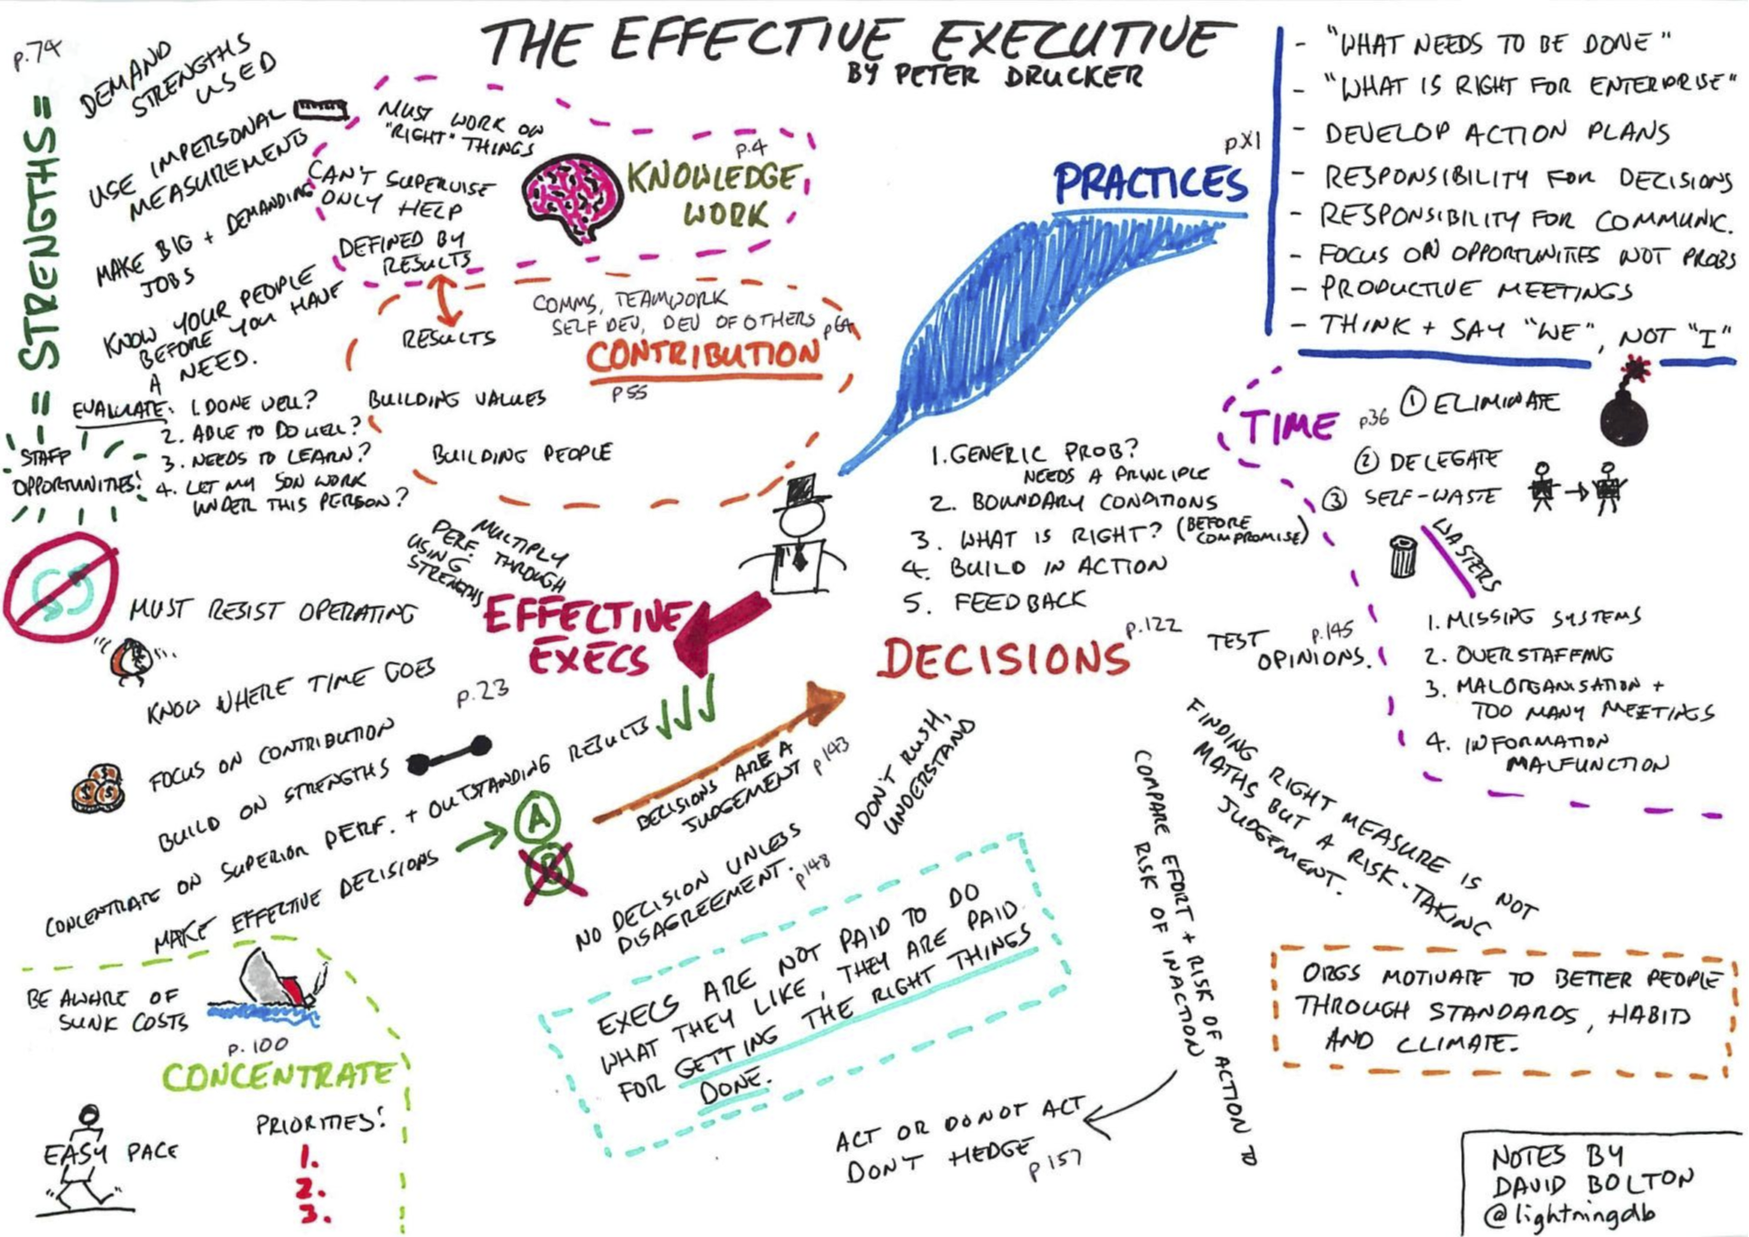 THE EFFECTIVE EXECUTIVE
BY PETER DRUCKER
p.74
= STRENGTHS =
DEMAND
STRENGTHS
USED
USE IMPERSONAL
MEASUREMENTS
MAKE BIG + DEMANDING
JOBS
KNOW YOUR PEOPLE
BEFORE YOU HAVE
A NEED.
EVALUATE: 1. DONE WELL?
2. ABLE TO DO WELL?
3. NEEDS TO LEARN?
4. LET MY SON WORK
UNDER THIS PERSON?
STAFF
OPPORTUNITIES!
MUST WORK ON
"RIGHT" THINGS
CAN'T SUPERVISE
ONLY HELP
DEFINED BY
RESULTS
p.4
KNOWLEDGE
WORK
RESULTS
COMMS, TEAMWORK
SELF DEV, DEV OF OTHERS p64
CONTRIBUTION
p55
BUILDING VALUES
BUILDING PEOPLE
pXI
PRACTICES
- "WHAT NEEDS TO BE DONE"
- "WHAT IS RIGHT FOR ENTERPRISE"
- DEVELOP ACTION PLANS
- RESPONSIBILITY FOR DECISIONS
- RESPONSIBILITY FOR COMMUNIC.
- FOCUS ON OPPORTUNITIES NOT PROBS
- PRODUCTIVE MEETINGS
- THINK + SAY "WE", NOT "I"
TIME p36
① ELIMINATE
② DELEGATE
③ SELF-WASTE
WASTERS
1. MISSING SYSTEMS
2. OVERSTAFFING
3. MALORGANISATION +
TOO MANY MEETINGS
4. INFORMATION
MALFUNCTION
1. GENERIC PROB?
NEEDS A PRINCIPLE
2. BOUNDARY CONDITIONS
3. WHAT IS RIGHT? (BEFORE
COMPROMISE)
4. BUILD IN ACTION
5. FEEDBACK
DECISIONS
p.122
TEST
OPINIONS.
p.145
MULTIPLY
PERF. THROUGH
USING
STRENGTHS
EFFECTIVE
EXECS
MUST RESIST OPERATING
KNOW WHERE TIME GOES
p.23
FOCUS ON CONTRIBUTION
BUILD ON STRENGTHS
CONCENTRATE ON SUPERIOR PERF. + OUTSTANDING RESULTS
MAKE EFFECTIVE DECISIONS
A
B
DECISIONS ARE A
JUDGEMENT p143
DON'T RUSH,
UNDERSTAND
NO DECISION UNLESS
DISAGREEMENT. p148
COMPARE EFFORT + RISK OF ACTION TO
RISK OF INACTION
FINDING RIGHT MEASURE IS NOT
MATHS BUT A RISK-TAKING
JUDGEMENT.
EXECS ARE NOT PAID TO DO
WHAT THEY LIKE, THEY ARE PAID
FOR GETTING THE RIGHT THINGS
DONE.
ACT OR DO NOT ACT
DON'T HEDGE
p157
ORGS MOTIVATE TO BETTER PEOPLE
THROUGH STANDARDS, HABITS
AND CLIMATE.
BE AWARE OF
SUNK COSTS
p.100
CONCENTRATE
EASY PACE
PRIORITIES!
1.
2.
3.
NOTES BY
DAVID BOLTON
@lightningdb